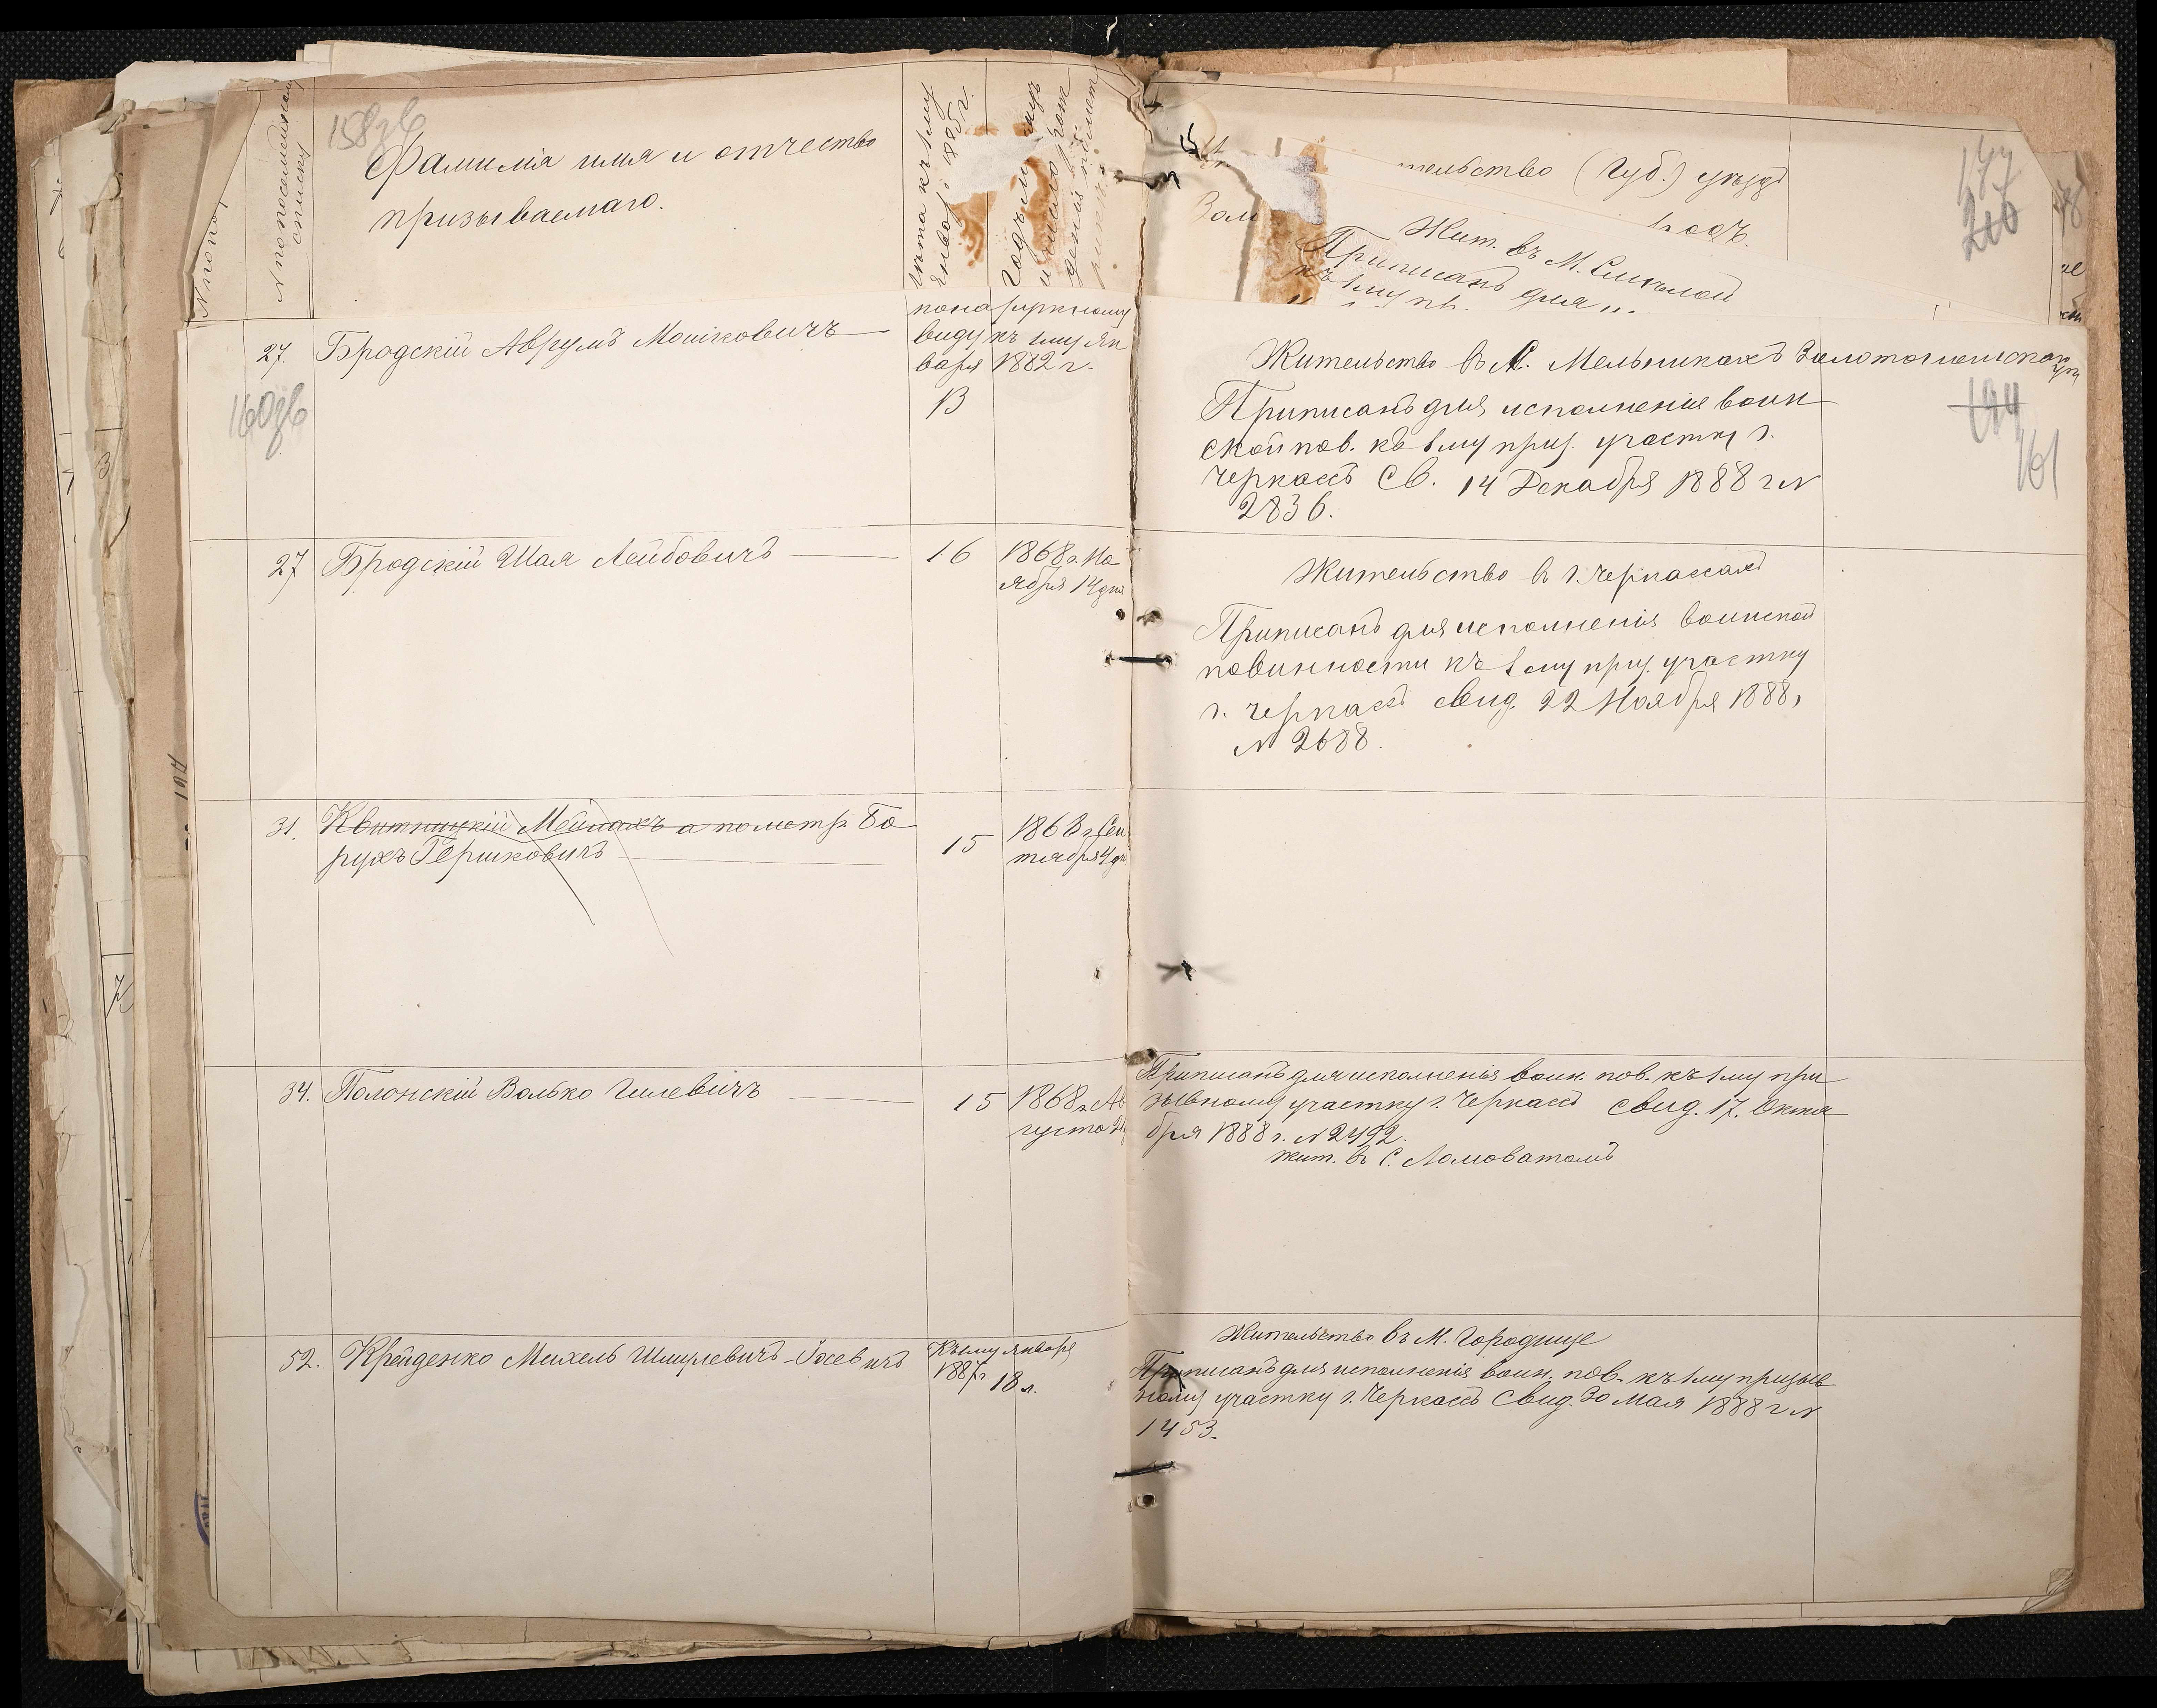 158зв
N по посемейному списку
Фамилія имя и отчество
призываемаго.
Лѣта къ 1му
Январ. 1885 г.
тельство (Губ.) уѣздъ
Жит. въ М. Смѣлой
Приписанъ для
177
27. Бродскій Аврумъ Мошковичъ
по наружному
виду къ 1му Ян
варя 1882 г.
13
160зв
Жительство въ С. Мельникахъ Золотоношскаго у.
Приписанъ для исполненія воин
ской пов. къ 1му приз. участку г.
Черкассъ Св. 14 Декабря 1888 г N
2836.
161
27 Бродскій Шая Лейбовичъ
16
1868 г. Но
ября 14 дня
Жительство въ г. Черкассахъ
Приписанъ для исполненія воинской
повинности къ 1му приз. участку
г. Черкассъ свид. 22 Ноября 1888 г
N 2688.
31. Квитницкій Мейлахъ а по метр. Бо
рухъ Гершковичъ
15
1868 г. Сен
тября 4 дн
34. Полонскій Волько Гилевичъ
15
1868 г. Ав
густа
Приписанъ для исполненія воин. пов. къ 1му при
зывному участку г. Черкассъ свид. 17. Октя
бря 1888 г. N 2492.
жит. въ С. Ломоватомъ
52. Крейденко Михель Шмулевичъ-Іосевичъ
Къ 1му Января
1887 г. 18 л.
Жительство въ М. Городище
Приписанъ для исполненія воин. пов. къ 1му призыв
ному участку г. Черкассъ Свид. 30 Мая 1888 г N
1453.